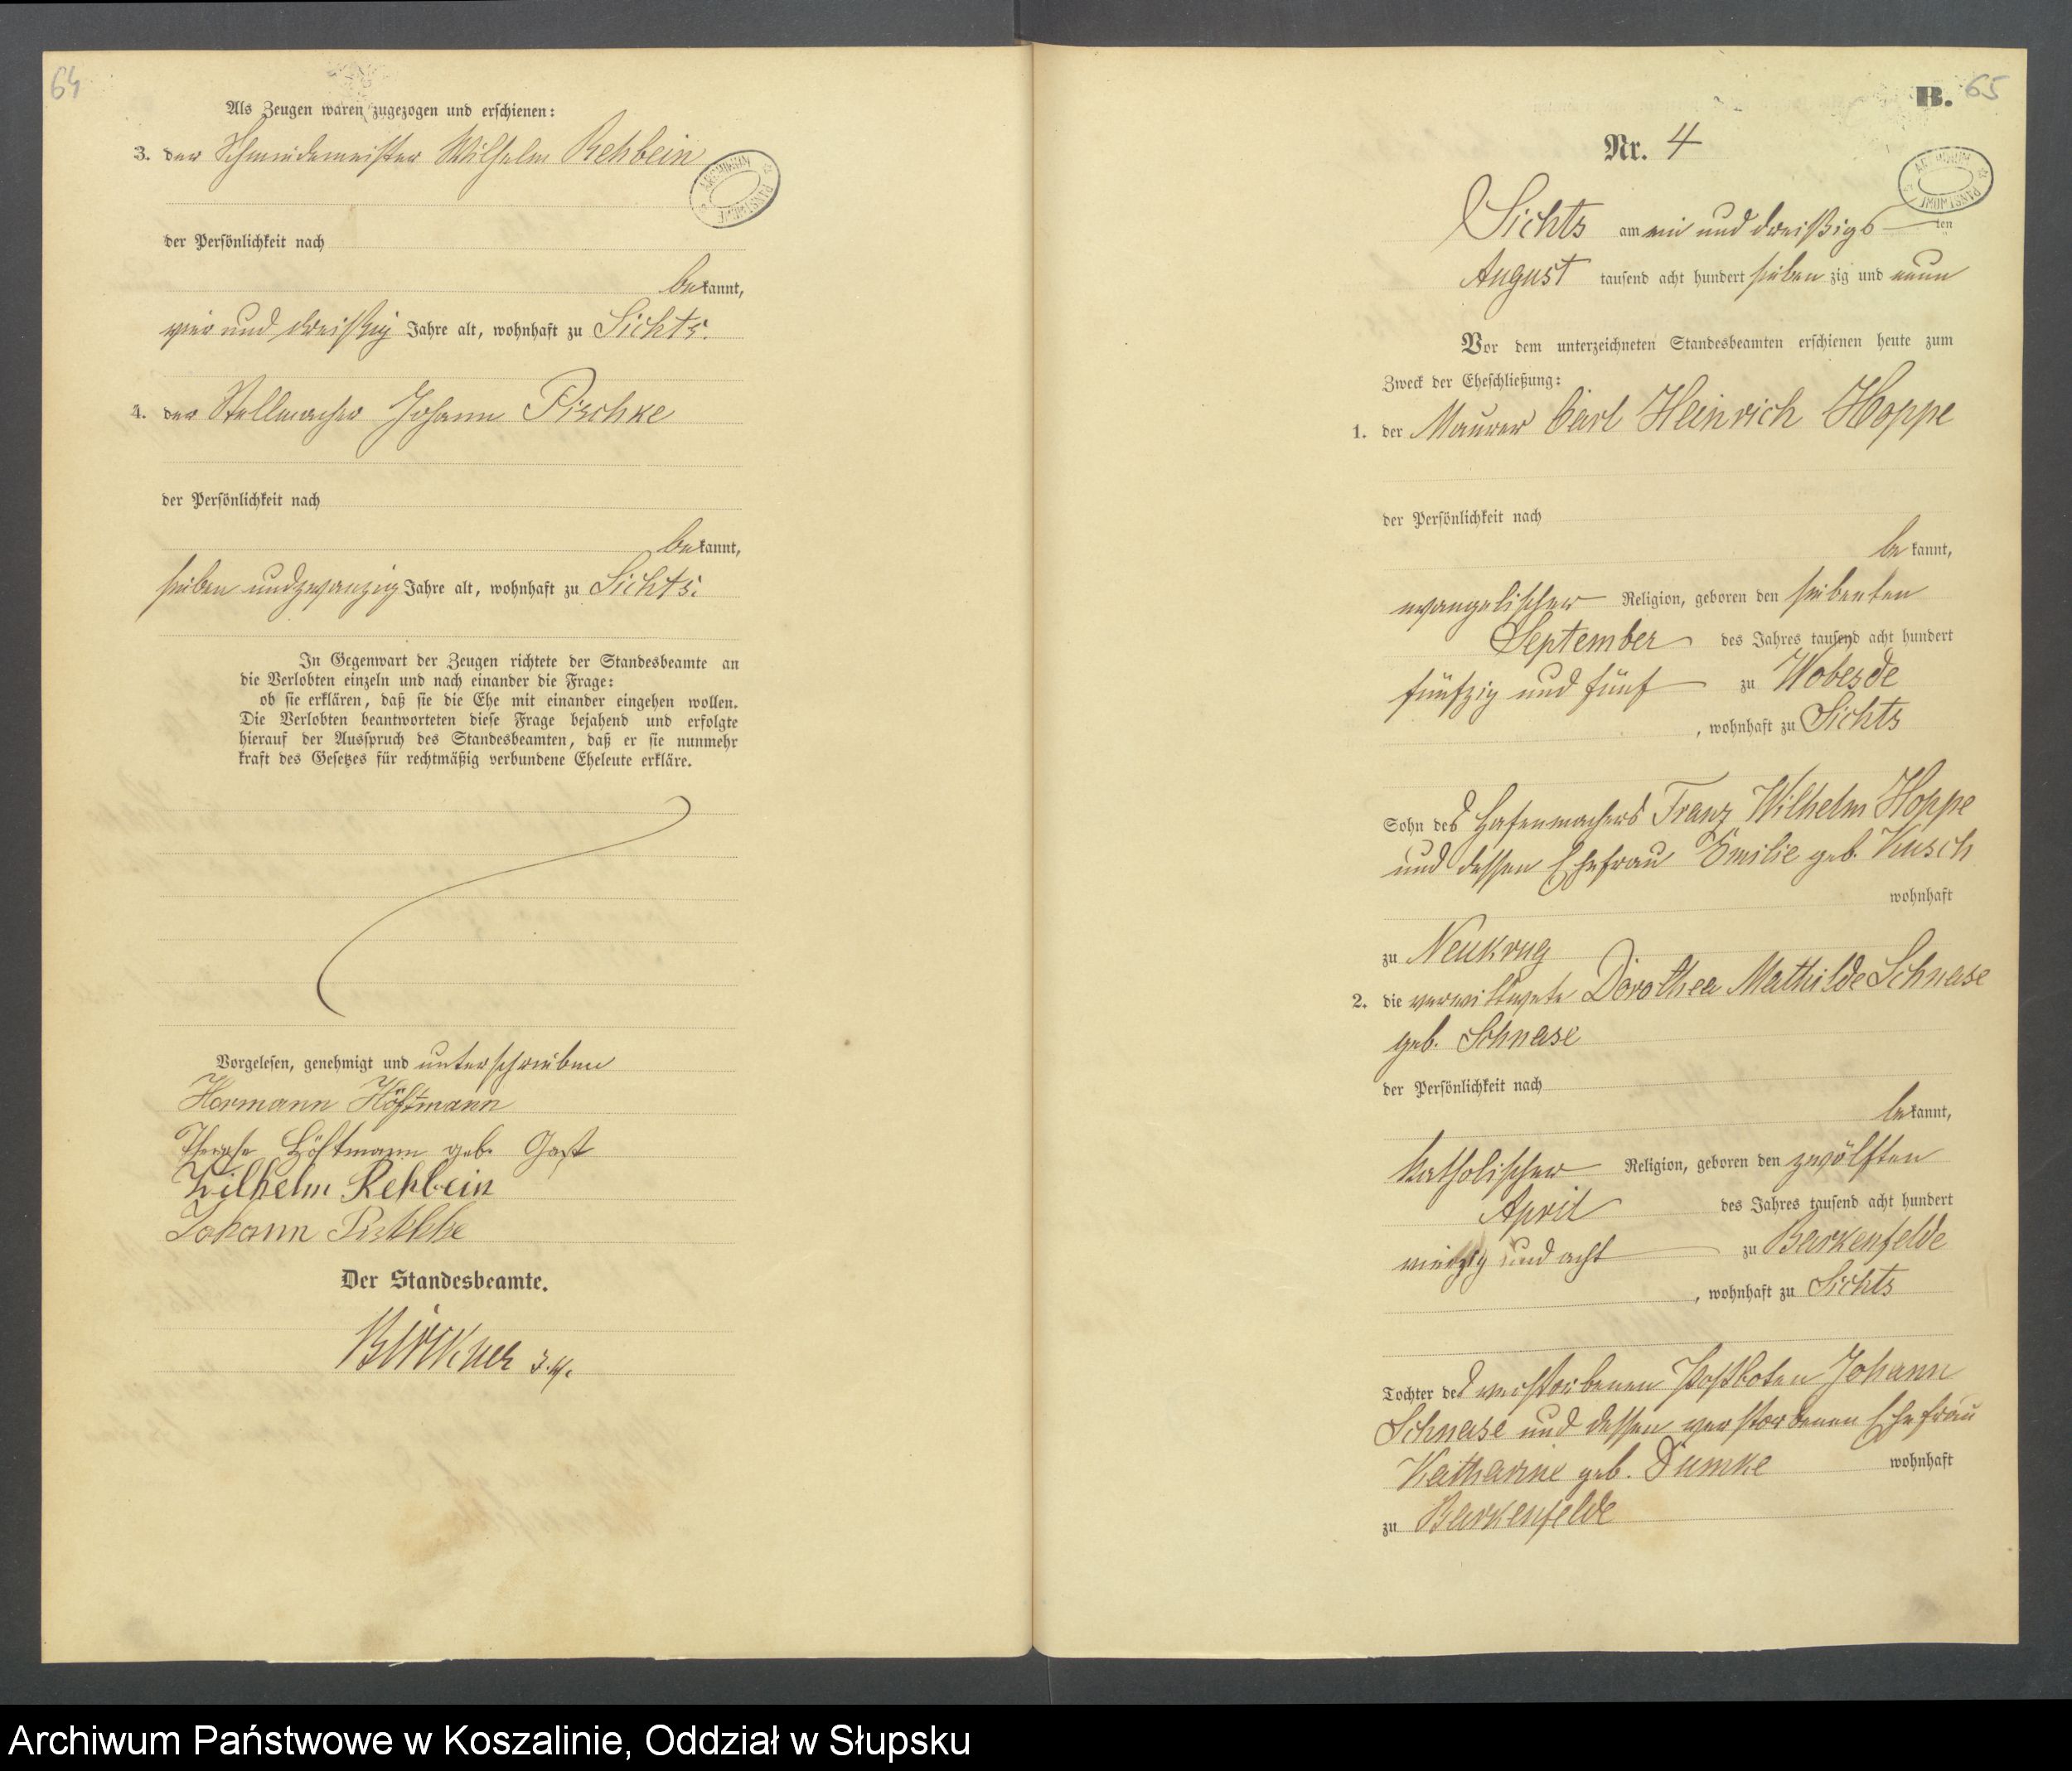 64
Als Zeugen waren zugezogen und erschienen:
3. der Schmiedemeister Wilhelm Rehbein
der Persönlichkeit nach
bekannt,
vier und dreißig Jahre alt, wohnhaft zu Sichts.
4. der Stellmacher Johann Pischke
der Persönlichkeit nach
bekannt,
sieben und zwanzig Jahre alt, wohnhaft zu Sichts.
In Gegenwart der Zeugen richtete der Standesbeamte an
die Verlobten einzeln und nach einander die Frage:
ob sie erklären, daß sie die Ehe mit einander eingehen wollen.
Die Verlobten beantworteten diese Frage bejahend und erfolgte
hierauf der Ausspruch des Standesbeamten, daß er sie nunmehr
kraft des Gesetzes für rechtmäßig verbundene Eheleute erkläre.
Vorgelesen, genehmigt und unterschrieben
Hermann Höftmann
Therese Höftmann geb. Gast
Wilhelm Rehbein
Johann
Der Standesbeamte.
Birkner
B. 65
Nr. 4
Sichts am ein und dreißigsten
August tausend acht hundert siebenzig und neun
Vor dem unterzeichneten Standesbeamten erschienen heute zum
Zweck der Eheschließung:
1. der Maurer Carl Heinrich Hoppe
der Persönlichkeit nach
bekannt,
evangelischer Religion, geboren den siebenten
September des Jahres tausend acht hundert
fünfzig und fünf zu Wobesde
, wohnhaft zu Sichts
Sohn des Hafenmachers Franz Wilhelm Hoppe
und dessen Ehefrau Emilie geb. Kusch
wohnhaft
zu Neukrug
2. die verwittwete Dorothea Mathilde Schnase
geb. Schnase
der Persönlichkeit nach
bekannt,
katholischer Religion, geboren den zwölften
April des Jahres tausend acht hundert
vierzig und acht zu Barkenfelde
, wohnhaft zu Sichts
Tochter des verstorbenen Postboten Johann
Schnase und dessen verstorbenen Ehefrau
Katharine geb. Dumke wohnhaft
zu Barkenfelde
Archiwum Państwowe w Koszalinie, Oddział w Słupsku